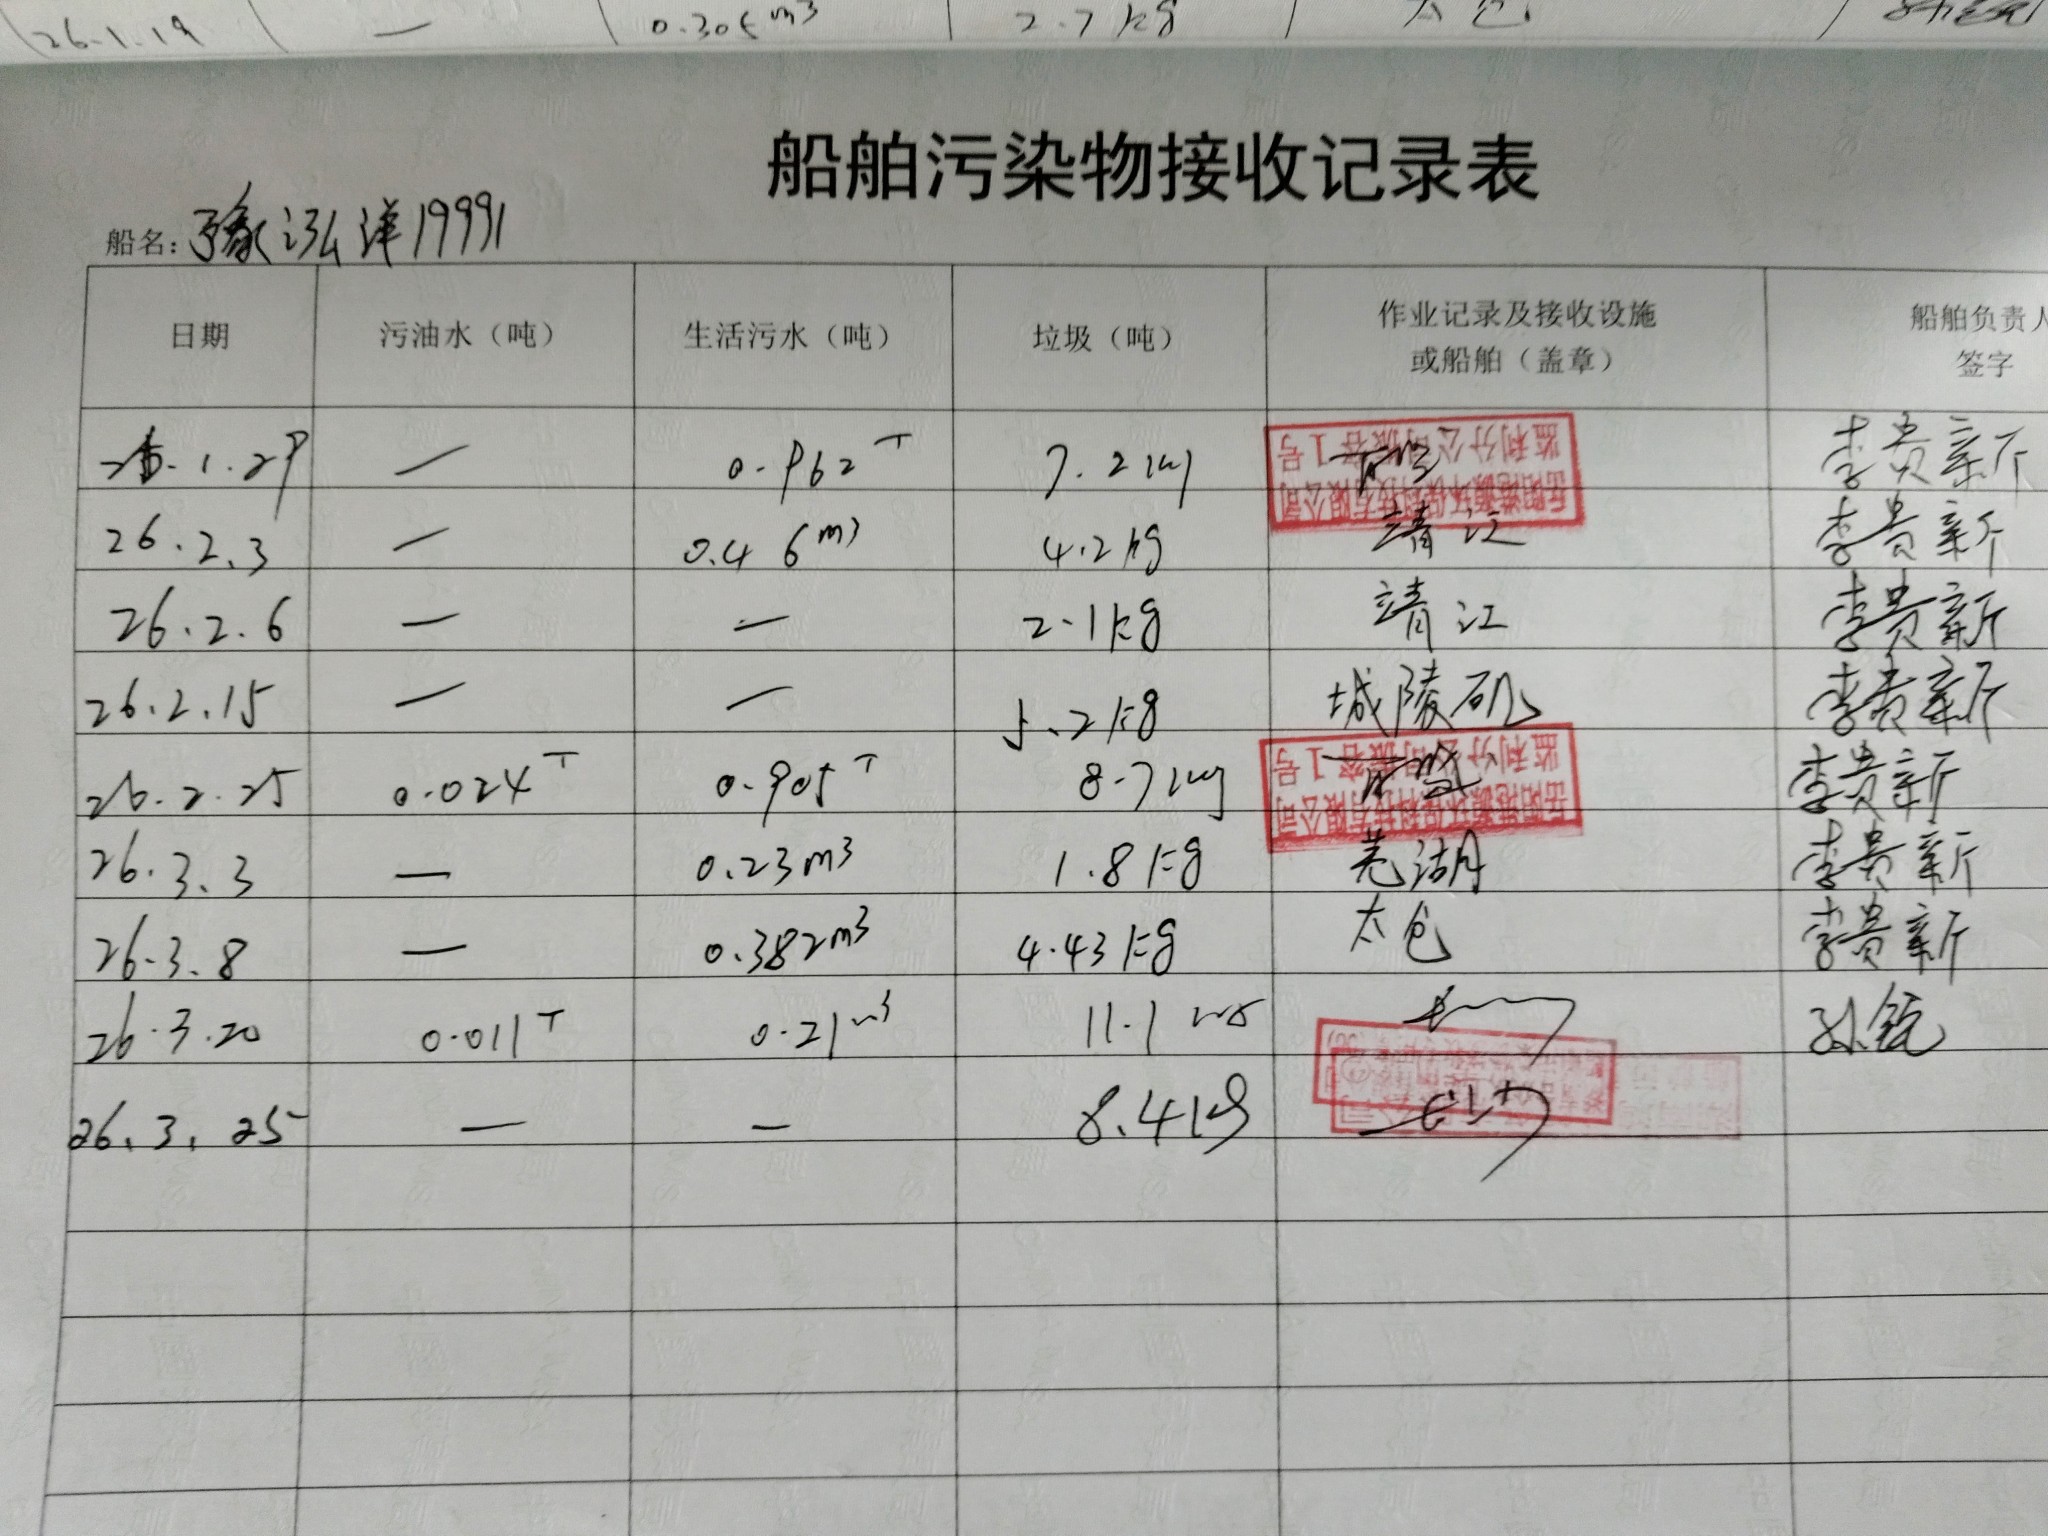 26.1.19 — 0.305m3 2.7kg 太仓
船舶污染物接收记录表
船名：豫泓洋19991
日期 污油水（吨） 生活污水（吨） 垃圾（吨） 作业记录及接收设施 船舶负责人
或船舶（盖章） 签字
26.1.29 — 0.962T 7.2kg 李贵新
岳阳港源环保科技有限公司
监利分公司
1号
26.2.3 — 0.46m3 4.2kg 靖江 李贵新
26.2.6 — — 2.1kg 靖江 李贵新
26.2.15 — — 5.2kg 城陵矶 李贵新
26.2.25 0.024T 0.905T 8.7kg 李贵新
监利分公司
1号
26.3.3 — 0.23m3 1.8kg 芜湖 李贵新
26.3.8 — 0.382m3 4.43kg 太仓 李贵新
26.3.20 0.011T 0.21m3 11.1kg 孙锐
26.3.25 — — 8.4kg